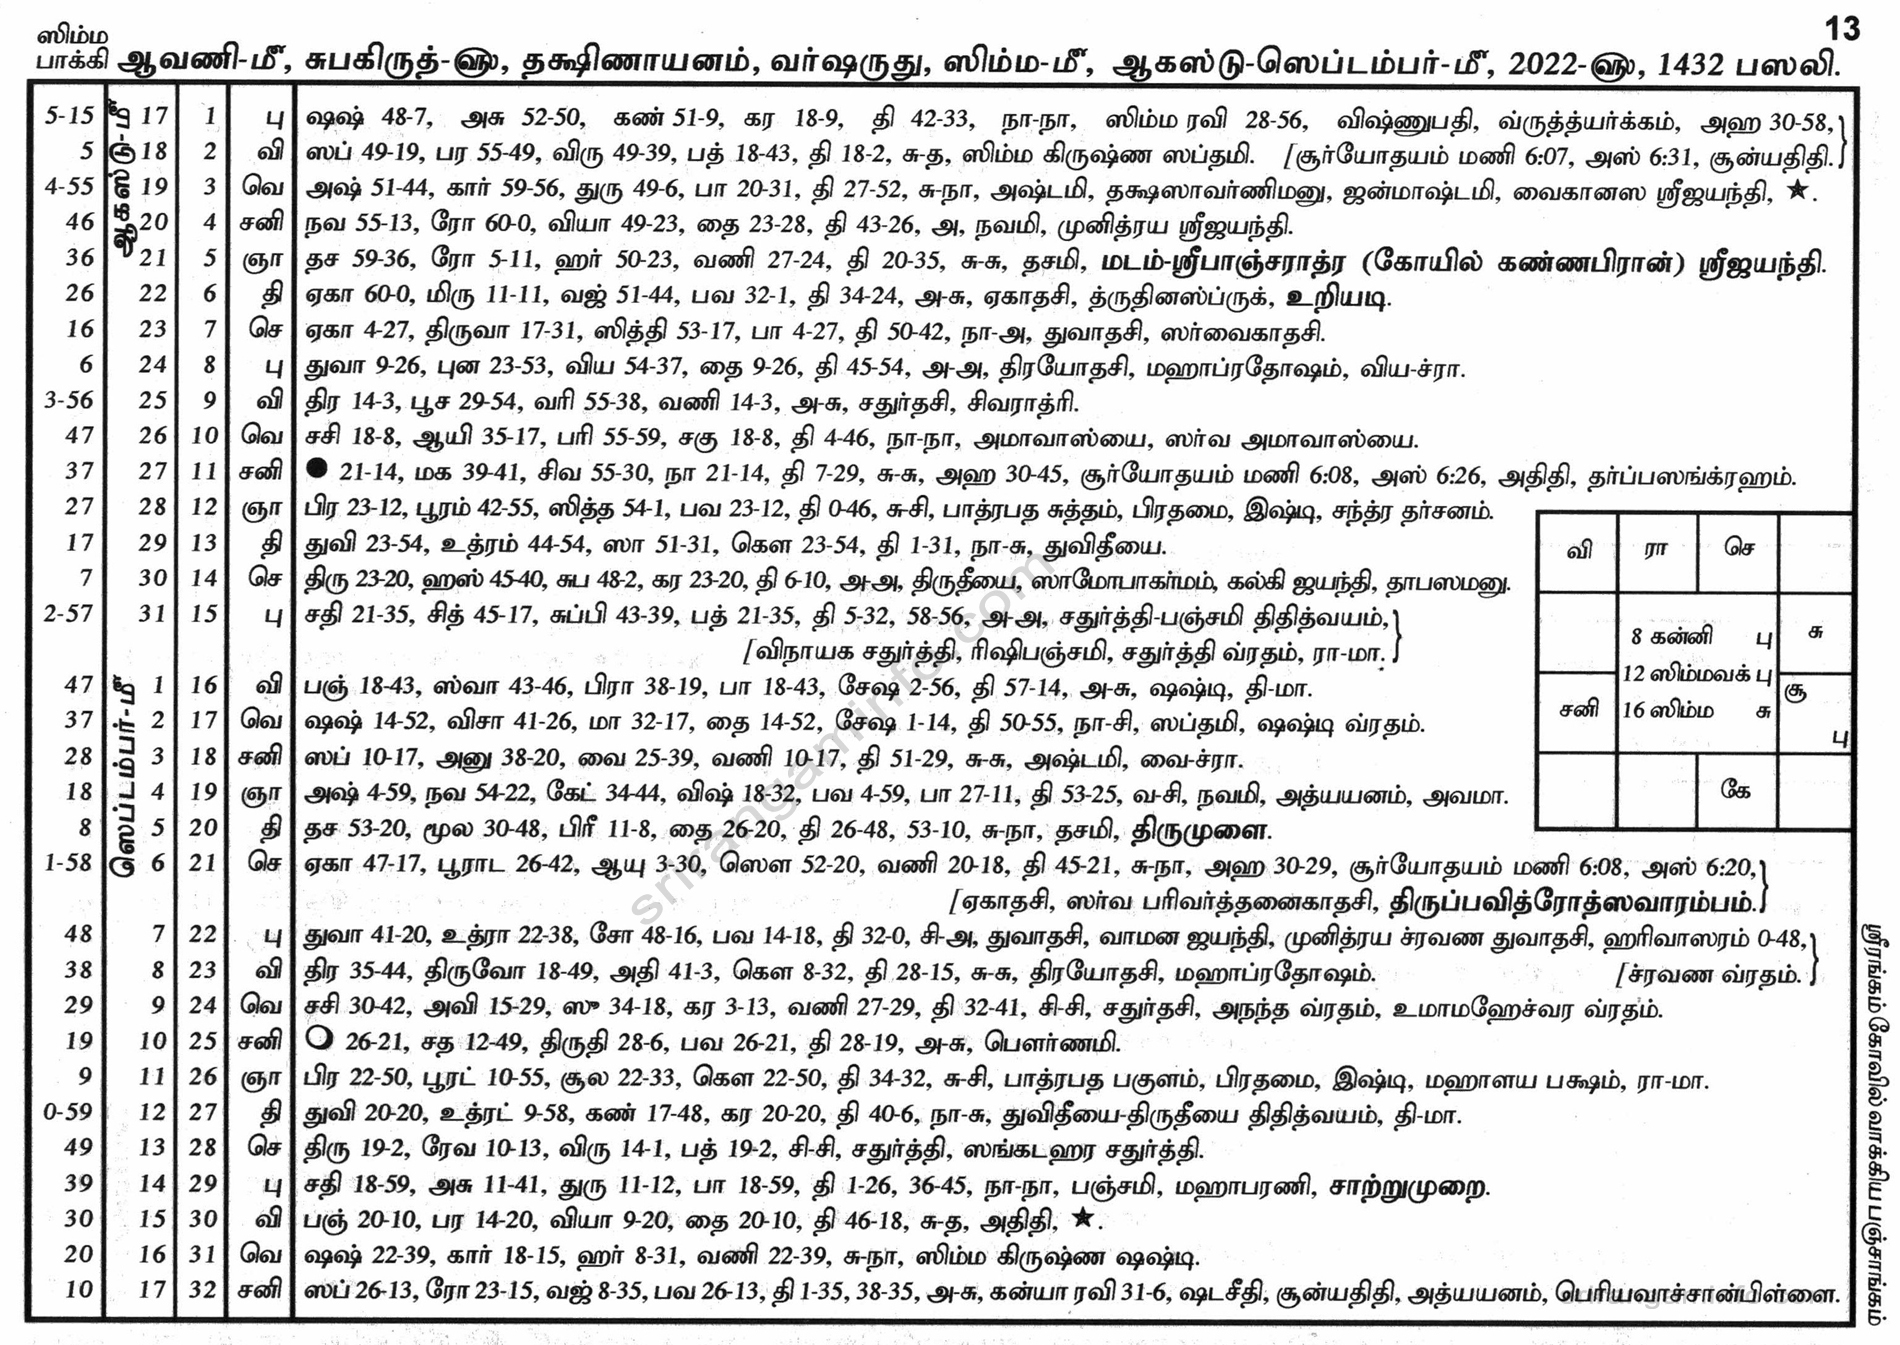 13
ஸிம்ம
பாக்கி ஆவணி-மீ, சுபகிருத்-௵, தக்ஷிணாயனம், வர்ஷருது, ஸிம்ம-மீ, ஆகஸ்டு-ஸெப்டம்பர்-மீ, 2022-௵, 1432 பஸலி.
ஆகஸ்டு-மீ
5-15 17 1 பு ஷஷ் 48-7, அசு 52-50, கண் 51-9, கர 18-9, தி 42-33, நா-நா, ஸிம்ம ரவி 28-56, விஷ்ணுபதி, வ்ருத்யர்க்கம், அஹ 30-58,
5 18 2 வி ஸப் 49-19, பர 55-49, விரு 49-39, பத் 18-43, தி 18-2, சு-த, ஸிம்ம கிருஷ்ண ஸப்தமி. [சூர்யோதயம் மணி 6:07, அஸ் 6:31, சூன்யதிதி.
4-55 19 3 வெ அஷ் 51-44, கார் 59-56, துரு 49-6, பா 20-31, தி 27-52, சு-நா, அஷ்டமி, தக்ஷஸாவர்ணிமனு, ஜன்மாஷ்டமி, வைகானஸ ஸ்ரீஜயந்தி, ★.
46 20 4 சனி நவ 55-13, ரோ 60-0, வியா 49-23, தை 23-28, தி 43-26, அ, நவமி, முனித்ரய ஸ்ரீஜயந்தி.
36 21 5 ஞா தச 59-36, ரோ 5-11, ஹர் 50-23, வணி 27-24, தி 20-35, சு-சு, தசமி, மடம்-ஸ்ரீபாஞ்சராத்ர (கோயில் கண்ணபிரான்) ஸ்ரீஜயந்தி.
26 22 6 தி ஏகா 60-0, மிரு 11-11, வஜ் 51-44, பவ 32-1, தி 34-24, அ-சு, ஏகாதசி, த்ருதினஸ்ப்ருக், உறியடி.
16 23 7 செ ஏகா 4-27, திருவா 17-31, ஸித்தி 53-17, பா 4-27, தி 50-42, நா-அ, துவாதசி, ஸர்வைகாதசி.
6 24 8 பு துவா 9-26, புன 23-53, விய 54-37, தை 9-26, தி 45-54, அ-அ, திரயோதசி, மஹாப்ரதோஷம், விய-ச்ரா.
3-56 25 9 வி திர 14-3, பூச 29-54, வரி 55-38, வணி 14-3, அ-சு, சதுர்தசி, சிவராத்ரி.
47 26 10 வெ சசி 18-8, ஆயி 35-17, பரி 55-59, சகு 18-8, தி 4-46, நா-நா, அமாவாஸ்யை, ஸர்வ அமாவாஸ்யை.
37 27 11 சனி ● 21-14, மக 39-41, சிவ 55-30, நா 21-14, தி 7-29, சு-சு, அஹ 30-45, சூர்யோதயம் மணி 6:08, அஸ் 6:26, அதிதி, தர்ப்பஸங்க்ரஹம்.
27 28 12 ஞா பிர 23-12, பூரம் 42-55, ஸித்த 54-1, பவ 23-12, தி 0-46, சு-சி, பாத்ரபத சுத்தம், பிரதமை, இஷ்டி, சந்த்ர தர்சனம்.
17 29 13 தி துவி 23-54, உத்ரம் 44-54, ஸா 51-31, கௌ 23-54, தி 1-31, நா-சு, துவிதீயை.
7 30 14 செ திரு 23-20, ஹஸ் 45-40, சுப 48-2, கர 23-20, தி 6-10, அ-அ, திருதீயை, ஸாமோபாகர்மம், கல்கி ஜயந்தி, தாபஸமனு.
2-57 31 15 பு சதி 21-35, சித் 45-17, சுப்பி 43-39, பத் 21-35, தி 5-32, 58-56, அ-அ, சதுர்த்தி-பஞ்சமி திதித்வயம்,
[விநாயக சதுர்த்தி, ரிஷிபஞ்சமி, சதுர்த்தி வ்ரதம், ரா-மா.
ஸெப்டம்பர்-மீ
47 1 16 வி பஞ் 18-43, ஸ்வா 43-46, பிரா 38-19, பா 18-43, சேஷ 2-56, தி 57-14, அ-சு, ஷஷ்டி, தி-மா.
37 2 17 வெ ஷஷ் 14-52, விசா 41-26, மா 32-17, தை 14-52, சேஷ 1-14, தி 50-55, நா-சி, ஸப்தமி, ஷஷ்டி வ்ரதம்.
28 3 18 சனி ஸப் 10-17, அனு 38-20, வை 25-39, வணி 10-17, தி 51-29, சு-சு, அஷ்டமி, வை-ச்ரா.
18 4 19 ஞா அஷ் 4-59, நவ 54-22, கேட் 34-44, விஷ் 18-32, பவ 4-59, பா 27-11, தி 53-25, வ-சி, நவமி, அத்யயனம், அவமா.
8 5 20 தி தச 53-20, மூல 30-48, பிரீ 11-8, தை 26-20, தி 26-48, 53-10, சு-நா, தசமி, திருமுளை.
1-58 6 21 செ ஏகா 47-17, பூராட 26-42, ஆயு 3-30, ஸௌ 52-20, வணி 20-18, தி 45-21, சு-நா, அஹ 30-29, சூர்யோதயம் மணி 6:08, அஸ் 6:20,
[ஏகாதசி, ஸர்வ பரிவர்த்தனைகாதசி, திருப்பவித்ரோத்ஸவாரம்பம்.
48 7 22 பு துவா 41-20, உத்ரா 22-38, சோ 48-16, பவ 14-18, தி 32-0, சி-அ, துவாதசி, வாமன ஜயந்தி, முனித்ரய ச்ரவண துவாதசி, ஹரிவாஸரம் 0-48,
38 8 23 வி திர 35-44, திருவோ 18-49, அதி 41-3, கௌ 8-32, தி 28-15, சு-சு, திரயோதசி, மஹாப்ரதோஷம். [ச்ரவண வ்ரதம்.
29 9 24 வெ சசி 30-42, அவி 15-29, ஸு 34-18, கர 3-13, வணி 27-29, தி 32-41, சி-சி, சதுர்தசி, அநந்த வ்ரதம், உமாமஹேச்வர வ்ரதம்.
19 10 25 சனி ○ 26-21, சத 12-49, திருதி 28-6, பவ 26-21, தி 28-19, அ-சு, பௌர்ணமி.
9 11 26 ஞா பிர 22-50, பூரட் 10-55, சூல 22-33, கௌ 22-50, தி 34-32, சு-சி, பாத்ரபத பகுளம், பிரதமை, இஷ்டி, மஹாளய பக்ஷம், ரா-மா.
0-59 12 27 தி துவி 20-20, உத்ரட் 9-58, கண் 17-48, கர 20-20, தி 40-6, நா-சு, துவிதீயை-திருதீயை திதித்வயம், தி-மா.
49 13 28 செ திரு 19-2, ரேவ 10-13, விரு 14-1, பத் 19-2, சி-சி, சதுர்த்தி, ஸங்கடஹர சதுர்த்தி.
39 14 29 பு சதி 18-59, அசு 11-41, துரு 11-12, பா 18-59, தி 1-26, 36-45, நா-நா, பஞ்சமி, மஹாபரணி, சாற்றுமுறை.
30 15 30 வி பஞ் 20-10, பர 14-20, வியா 9-20, தை 20-10, தி 46-18, சு-த, அதிதி, ★.
20 16 31 வெ ஷஷ் 22-39, கார் 18-15, ஹர் 8-31, வணி 22-39, சு-நா, ஸிம்ம கிருஷ்ண ஷஷ்டி.
10 17 32 சனி ஸப் 26-13, ரோ 23-15, வஜ் 8-35, பவ 26-13, தி 1-35, 38-35, அ-சு, கன்யா ரவி 31-6, ஷடசீதி, சூன்யதிதி, அத்யயனம், பெரியவாச்சான்பிள்ளை.
வி ரா செ
8 கன்னி பு சு
12 ஸிம்மவக் பு
சனி 16 ஸிம்ம சு சூ
பு
கே
ஸ்ரீரங்கம் கோவில் வாக்கிய பஞ்சாங்கம்
srirangaminfo.com